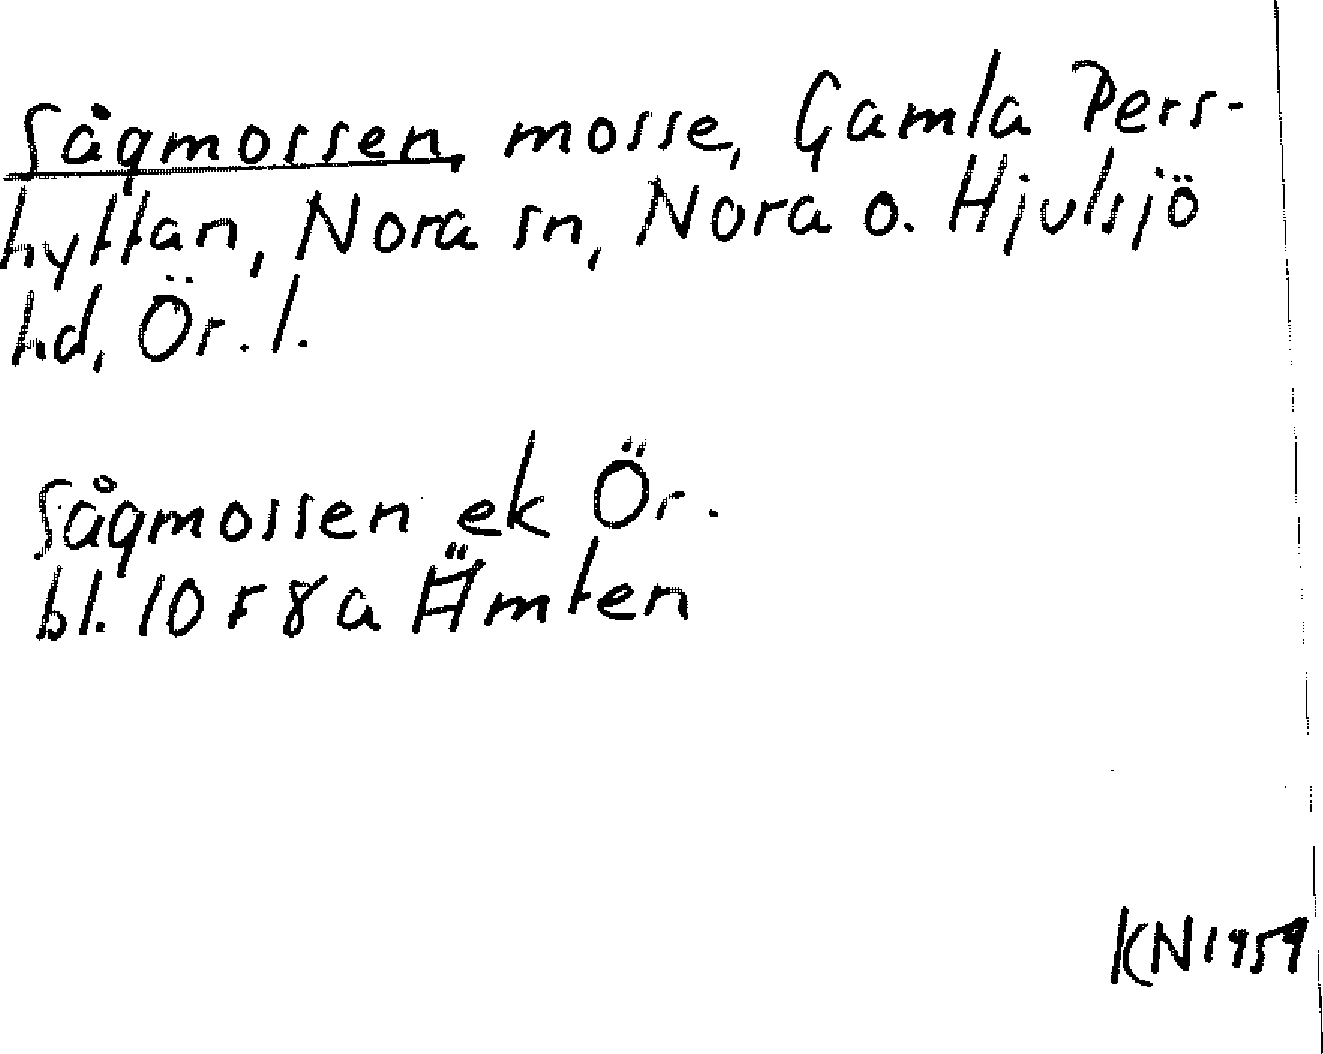 Sågmossen, mosse, Gamla Pers-
hyttan, Nora sn, Nora o. Hjulsjö
hd, Ör. l.
Sågmossen ek Ör.
bl. 10 F 8 a Ämten
KN 1959